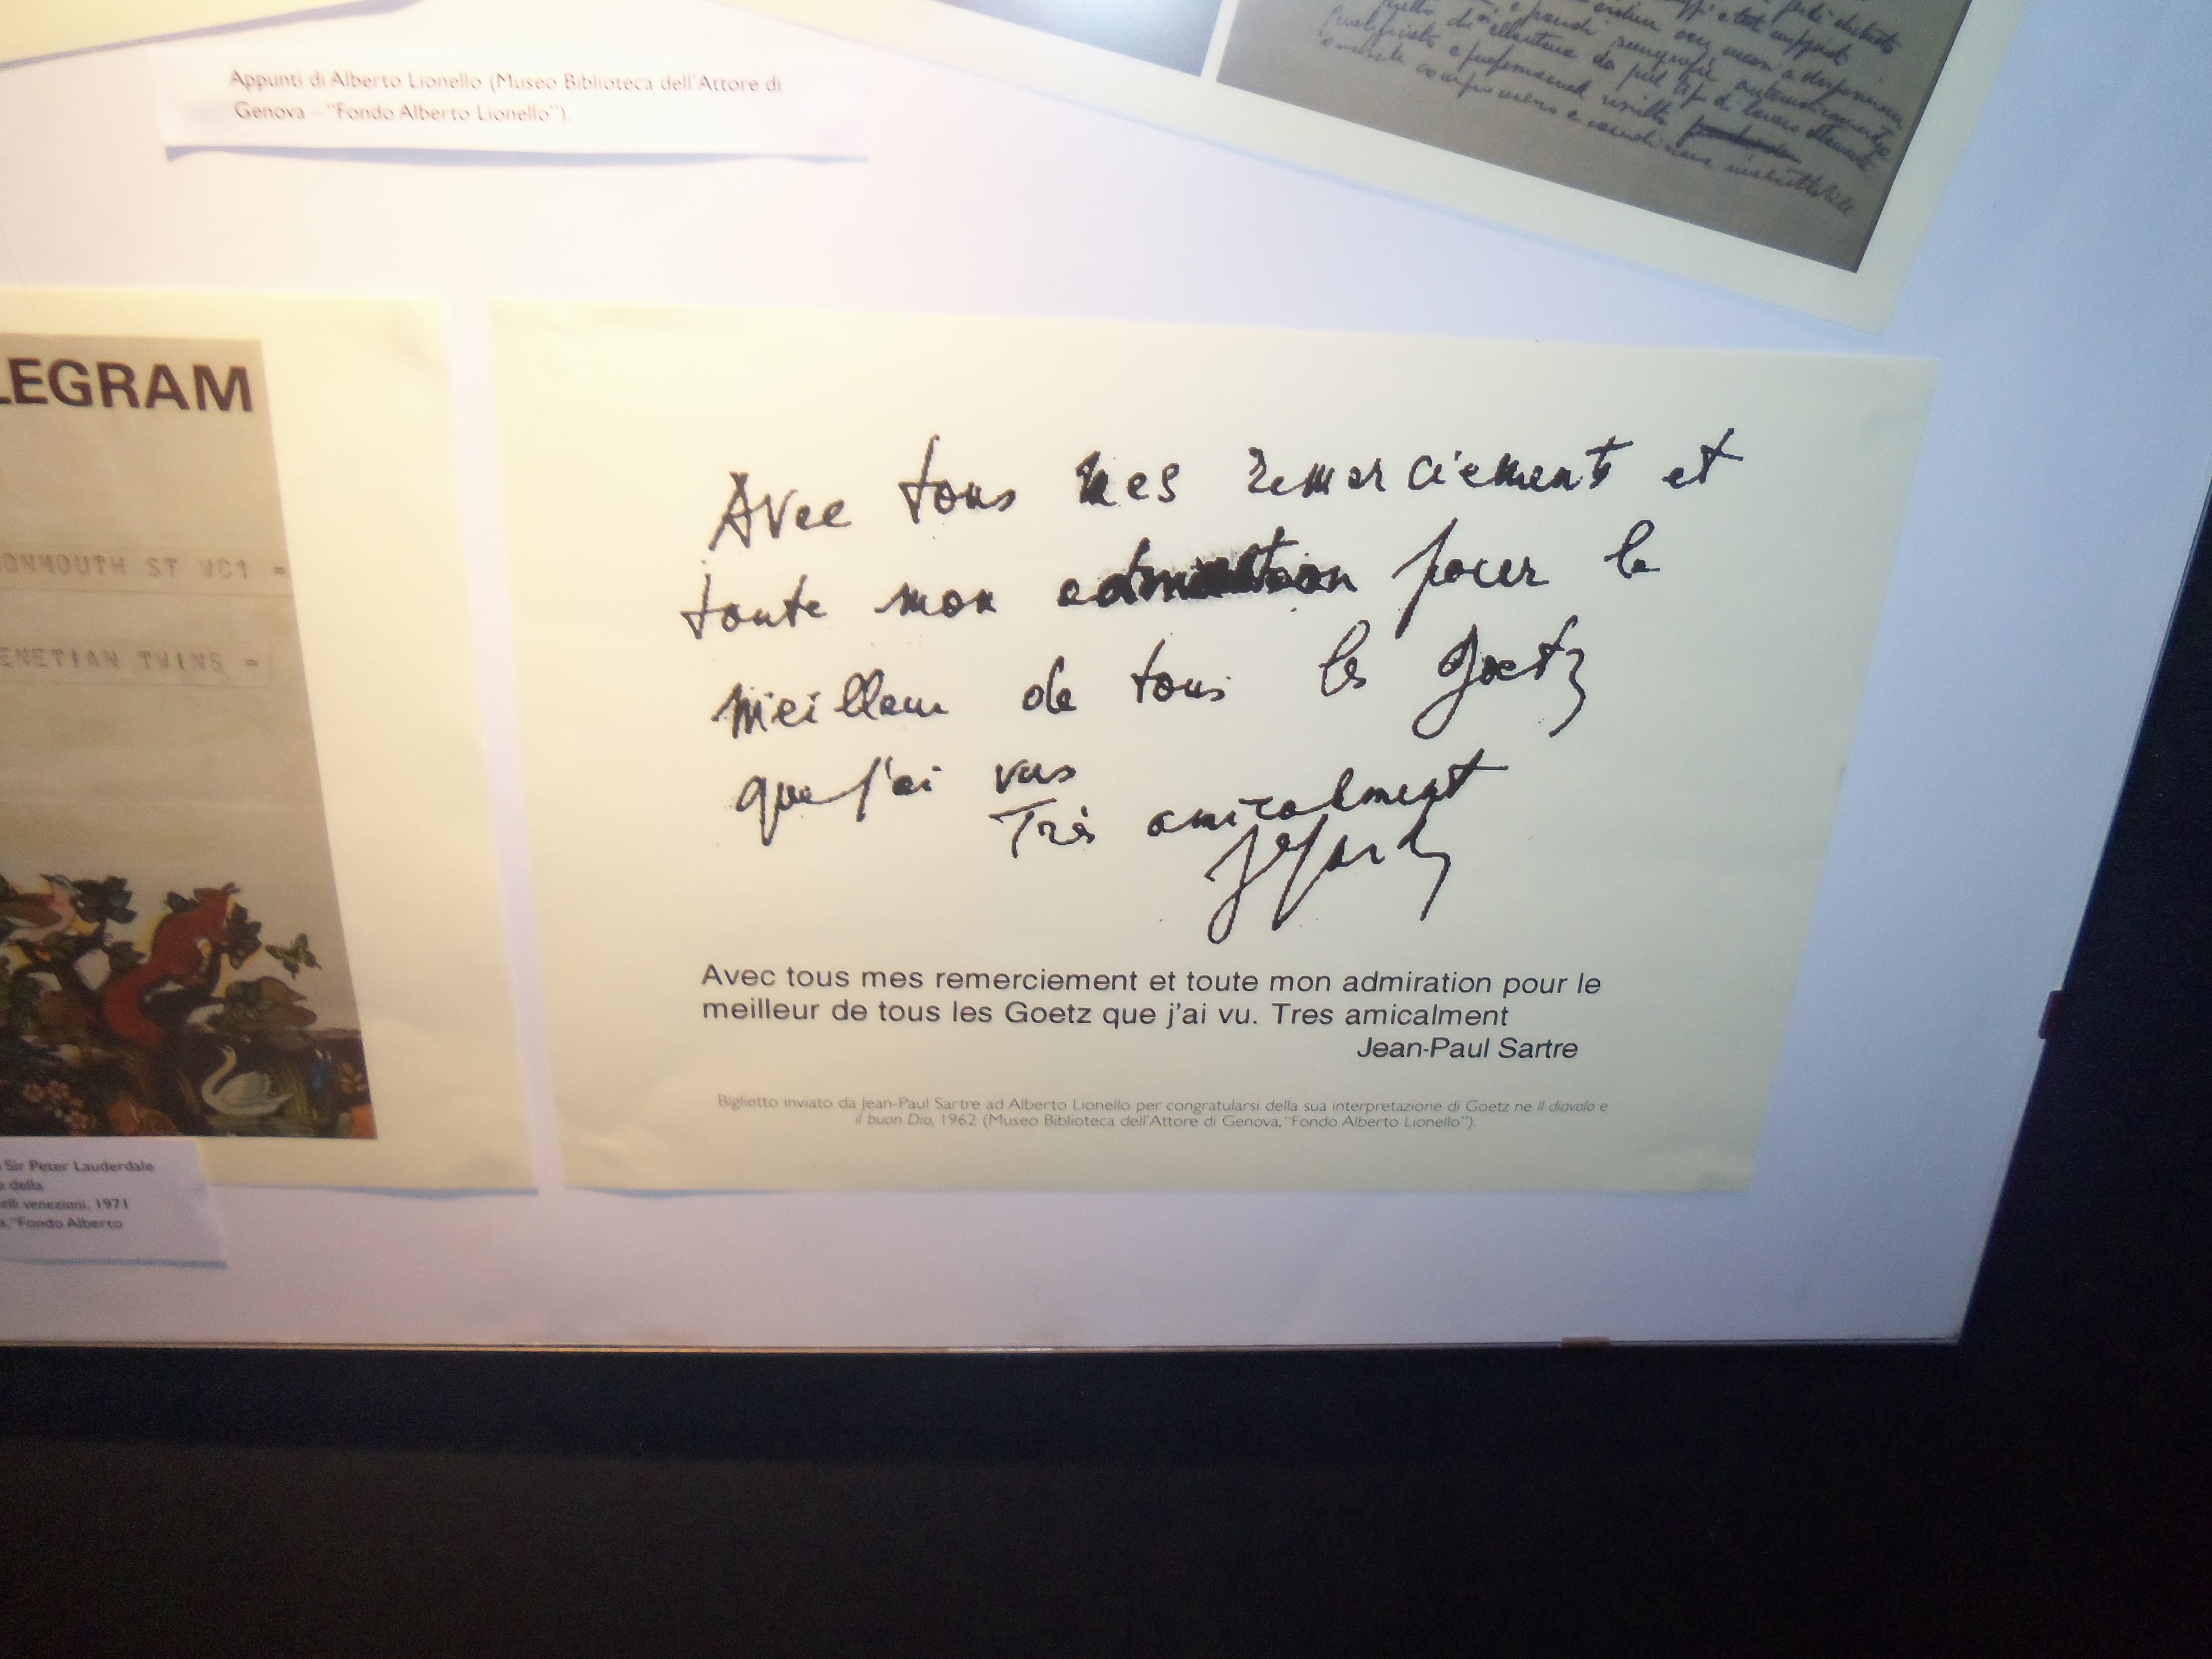 Appunti di Alberto Lionello (Museo Biblioteca dell'Attore di
Genova - "Fondo Alberto Lionello").
LEGRAM
ONMOUTH ST WC1 =
ENETIAN TWINS =
Sir Peter Lauderdale
e della
elli venezioni, 1971
a, "Fondo Alberto
Avec tous mes remerciements et
toute mon admiration pour le
meilleur de tous les Goetz
que j'ai vus
Très amicalment
JPSartre
Avec tous mes remerciement et toute mon admiration pour le
meilleur de tous les Goetz que j'ai vu. Tres amicalment
Jean-Paul Sartre
Biglietto inviato da Jean-Paul Sartre ad Alberto Lionello per congratularsi della sua interpretazione di Goetz ne Il diavolo e
il buon Dio, 1962 (Museo Biblioteca dell'Attore di Genova, "Fondo Alberto Lionello").